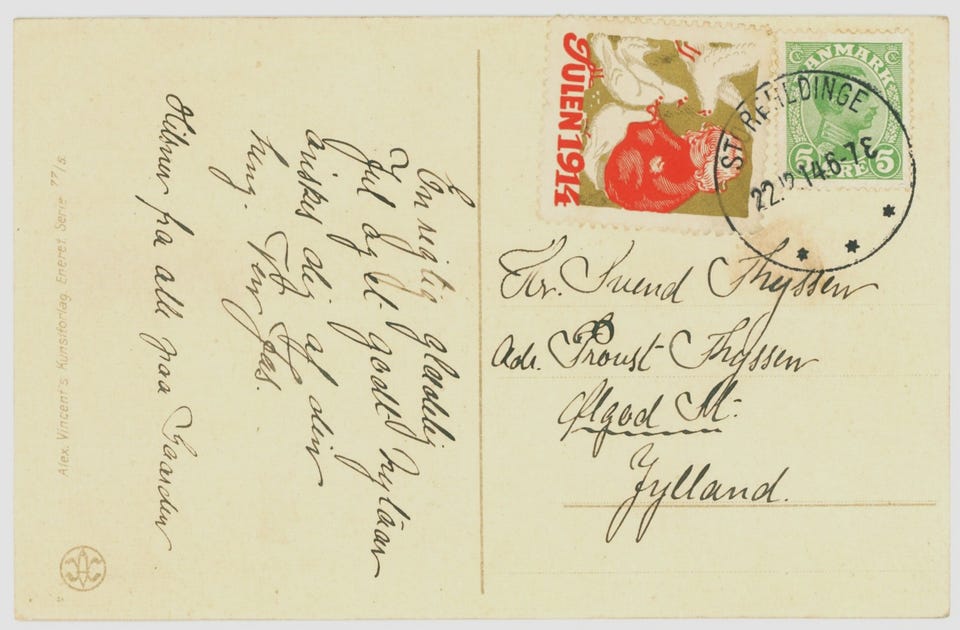 JULEN 1914
DANMARK
5 ØRE 5
STORE HEDINGE
22.12.14.6-7 E
En rigtig glædelig
Jul og et godt Nytaar
ønskes dig af din
heng. Ven
Hilsner fra alle paa Gaarden
Hr. Svend Thyssen
Adr. Provst Thyssen
Ølgod St.
Jylland.
Alex. Vincent's Kunstforlag, Eneret Serie 77/5.